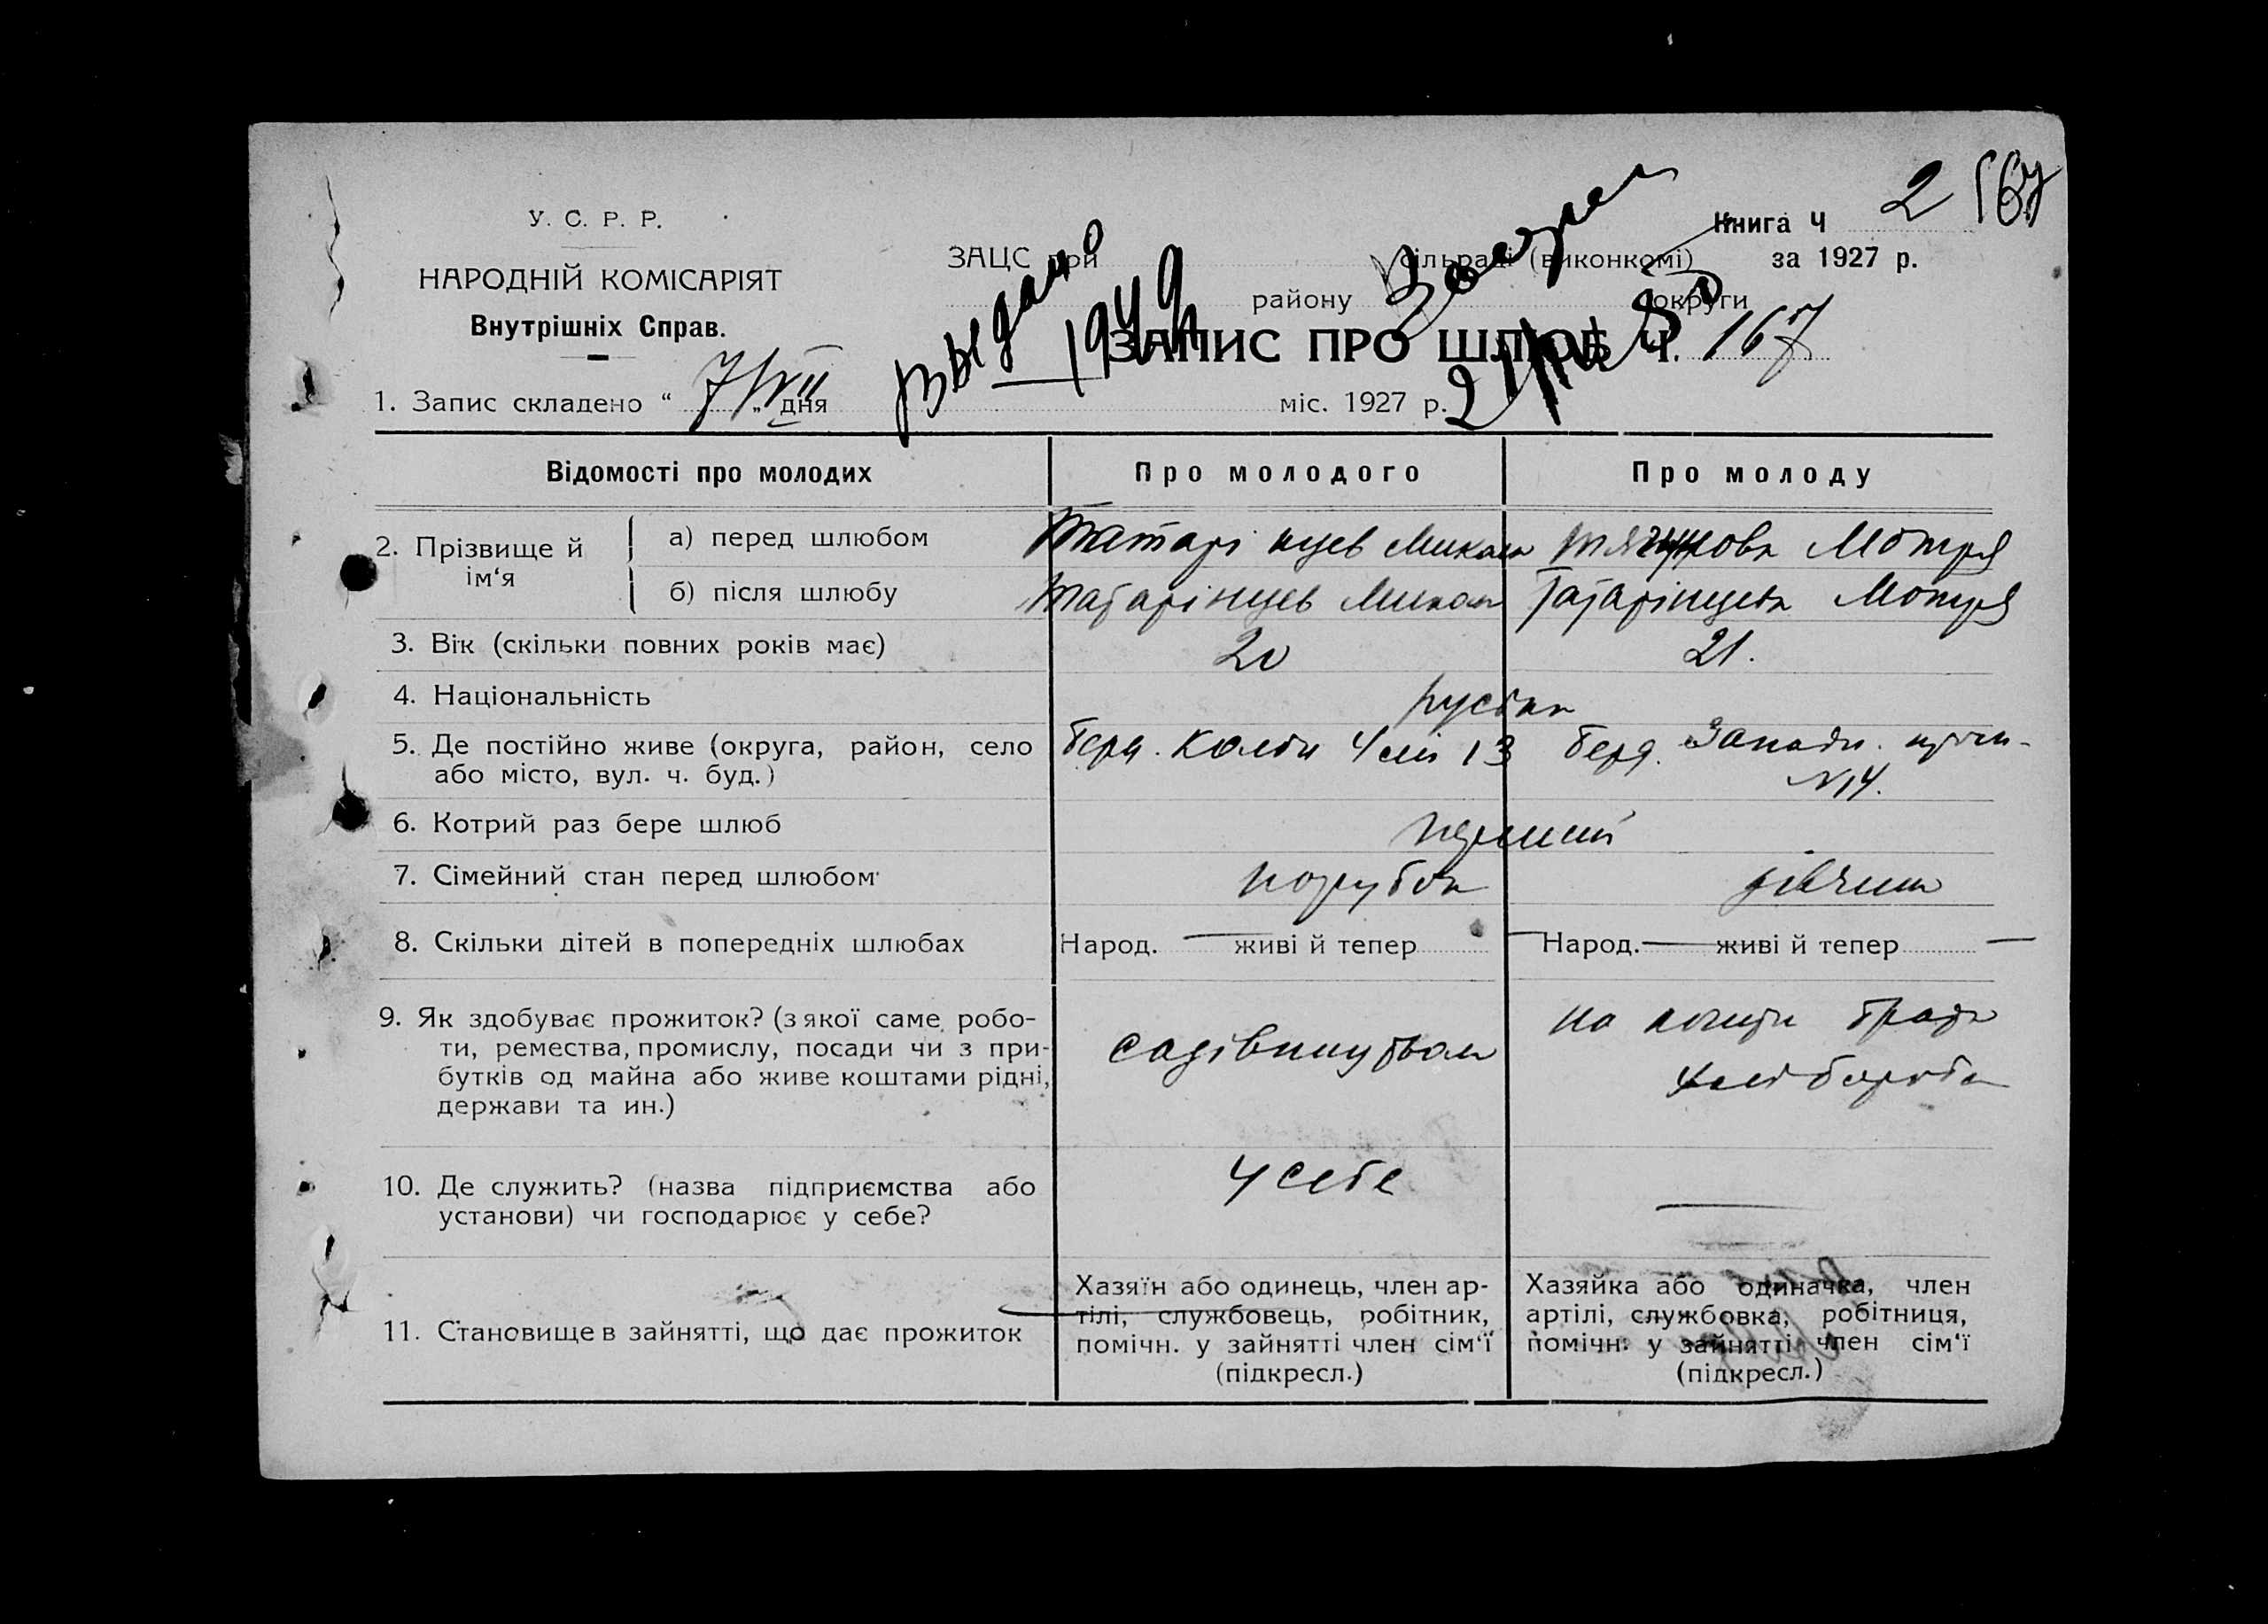 У. С. Р. Р.
НАРОДНІЙ КОМІСАРІЯТ
Внутрішніх Справ.
Книга Ч 2 167
за 1927 р.
ЗАЦС при сільраді (виконкомі)
району округи
выдано
1949
ЗАПИС ПРО ШЛЮБ Ч. 167
1. Запис складено “ 7/VII „ дня міс. 1927 р.
Відомості про молодих Про молодого Про молоду
2. Прізвище й ім‘я
а) перед шлюбом Татарінцев Микола Мотря
б) після шлюбу Татарінцев Микола Татарінцева Мотря
3. Вік (скільки повних років має) 20 21.
4. Національність
5. Де постійно живе (округа, район, село
або місто, вул. ч. буд.)
13 Берд.
N 14.
6. Котрий раз бере шлюб перший
7. Сімейний стан перед шлюбом парубок дівчина
8. Скільки дітей в попередніх шлюбах Народ. — живі й тепер — Народ. — живі й тепер —
9. Як здобуває прожиток? (з якої саме робо-
ти, ремества, промислу, посади чи з при-
бутків од майна або живе коштами рідні,
держави та ин.)
садівництвом
на кошти брата
хлібороба
10. Де служить? (назва підприємства або
установи) чи господарює у себе?
у себе —
11. Становище в зайнятті, що дає прожиток
Хазяїн або одинець, член ар-
тілі, службовець, робітник,
помічн. у зайнятті член сім‘ї
(підкресл.)
Хазяйка або одиначка, член
артілі, службовка, робітниця,
помічн. у зайнятті член сім‘ї
(підкресл.)